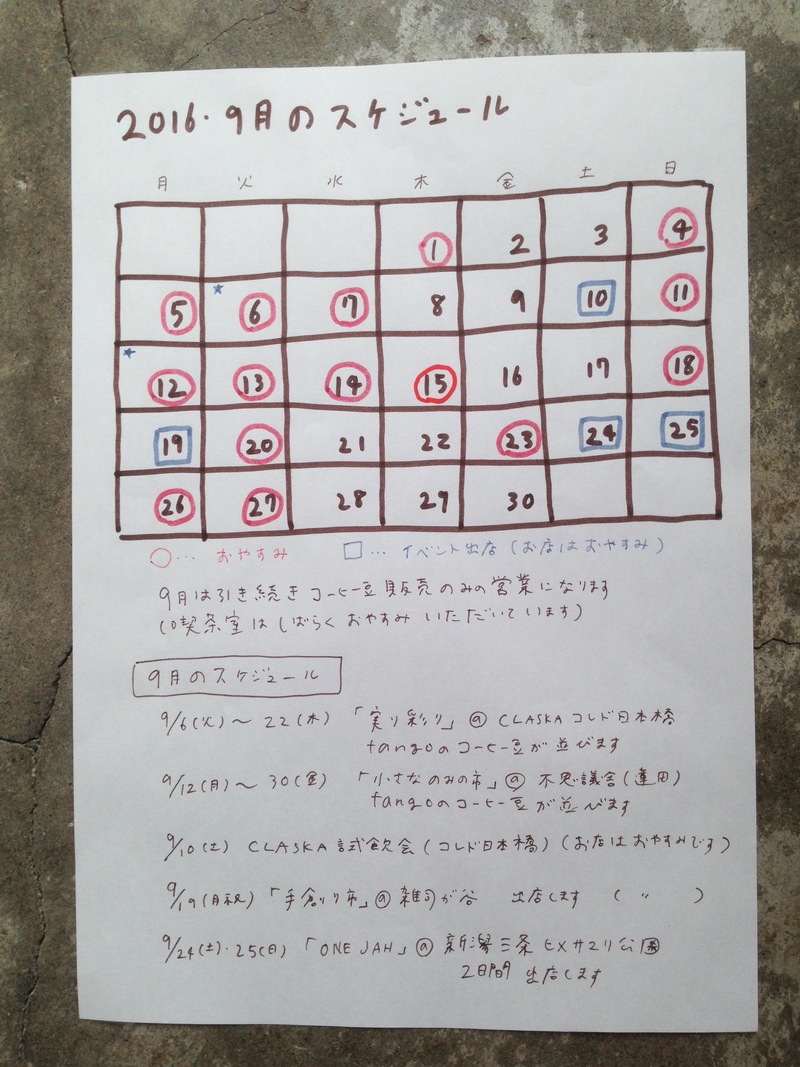 2016.9月のスケジュール
月 火 水 木 金 土 日
1 2 3 4
★
5 6 7 8 9 10 11
★
12 13 14 15 16 17 18
19 20 21 22 23 24 25
26 27 28 29 30
○… おやすみ □… イベント出店(お店はおやすみ)
9月は引き続きコーヒー豆販売のみの営業になります
(喫茶室はしばらくおやすみいただいています)
9月のスケジュール
9/6(火)〜22(木) 「実り彩り」@ CLASKA コレド日本橋
tangoのコーヒー豆が並びます
9/12(月)〜30(金) 「小さなのみの市」@ 不思議舎(蓮田)
tangoのコーヒー豆が並べます
9/10(土) CLASKA 試飲会(コレド日本橋)(お店はおやすみです)
9/19(月祝)「手創り市」@ 雑司が谷 出店します ( 〃 )
9/24(土)・25(日) 「ONE JAH」@ 新潟三条 ヒメサユリ公園
2日間 出店します